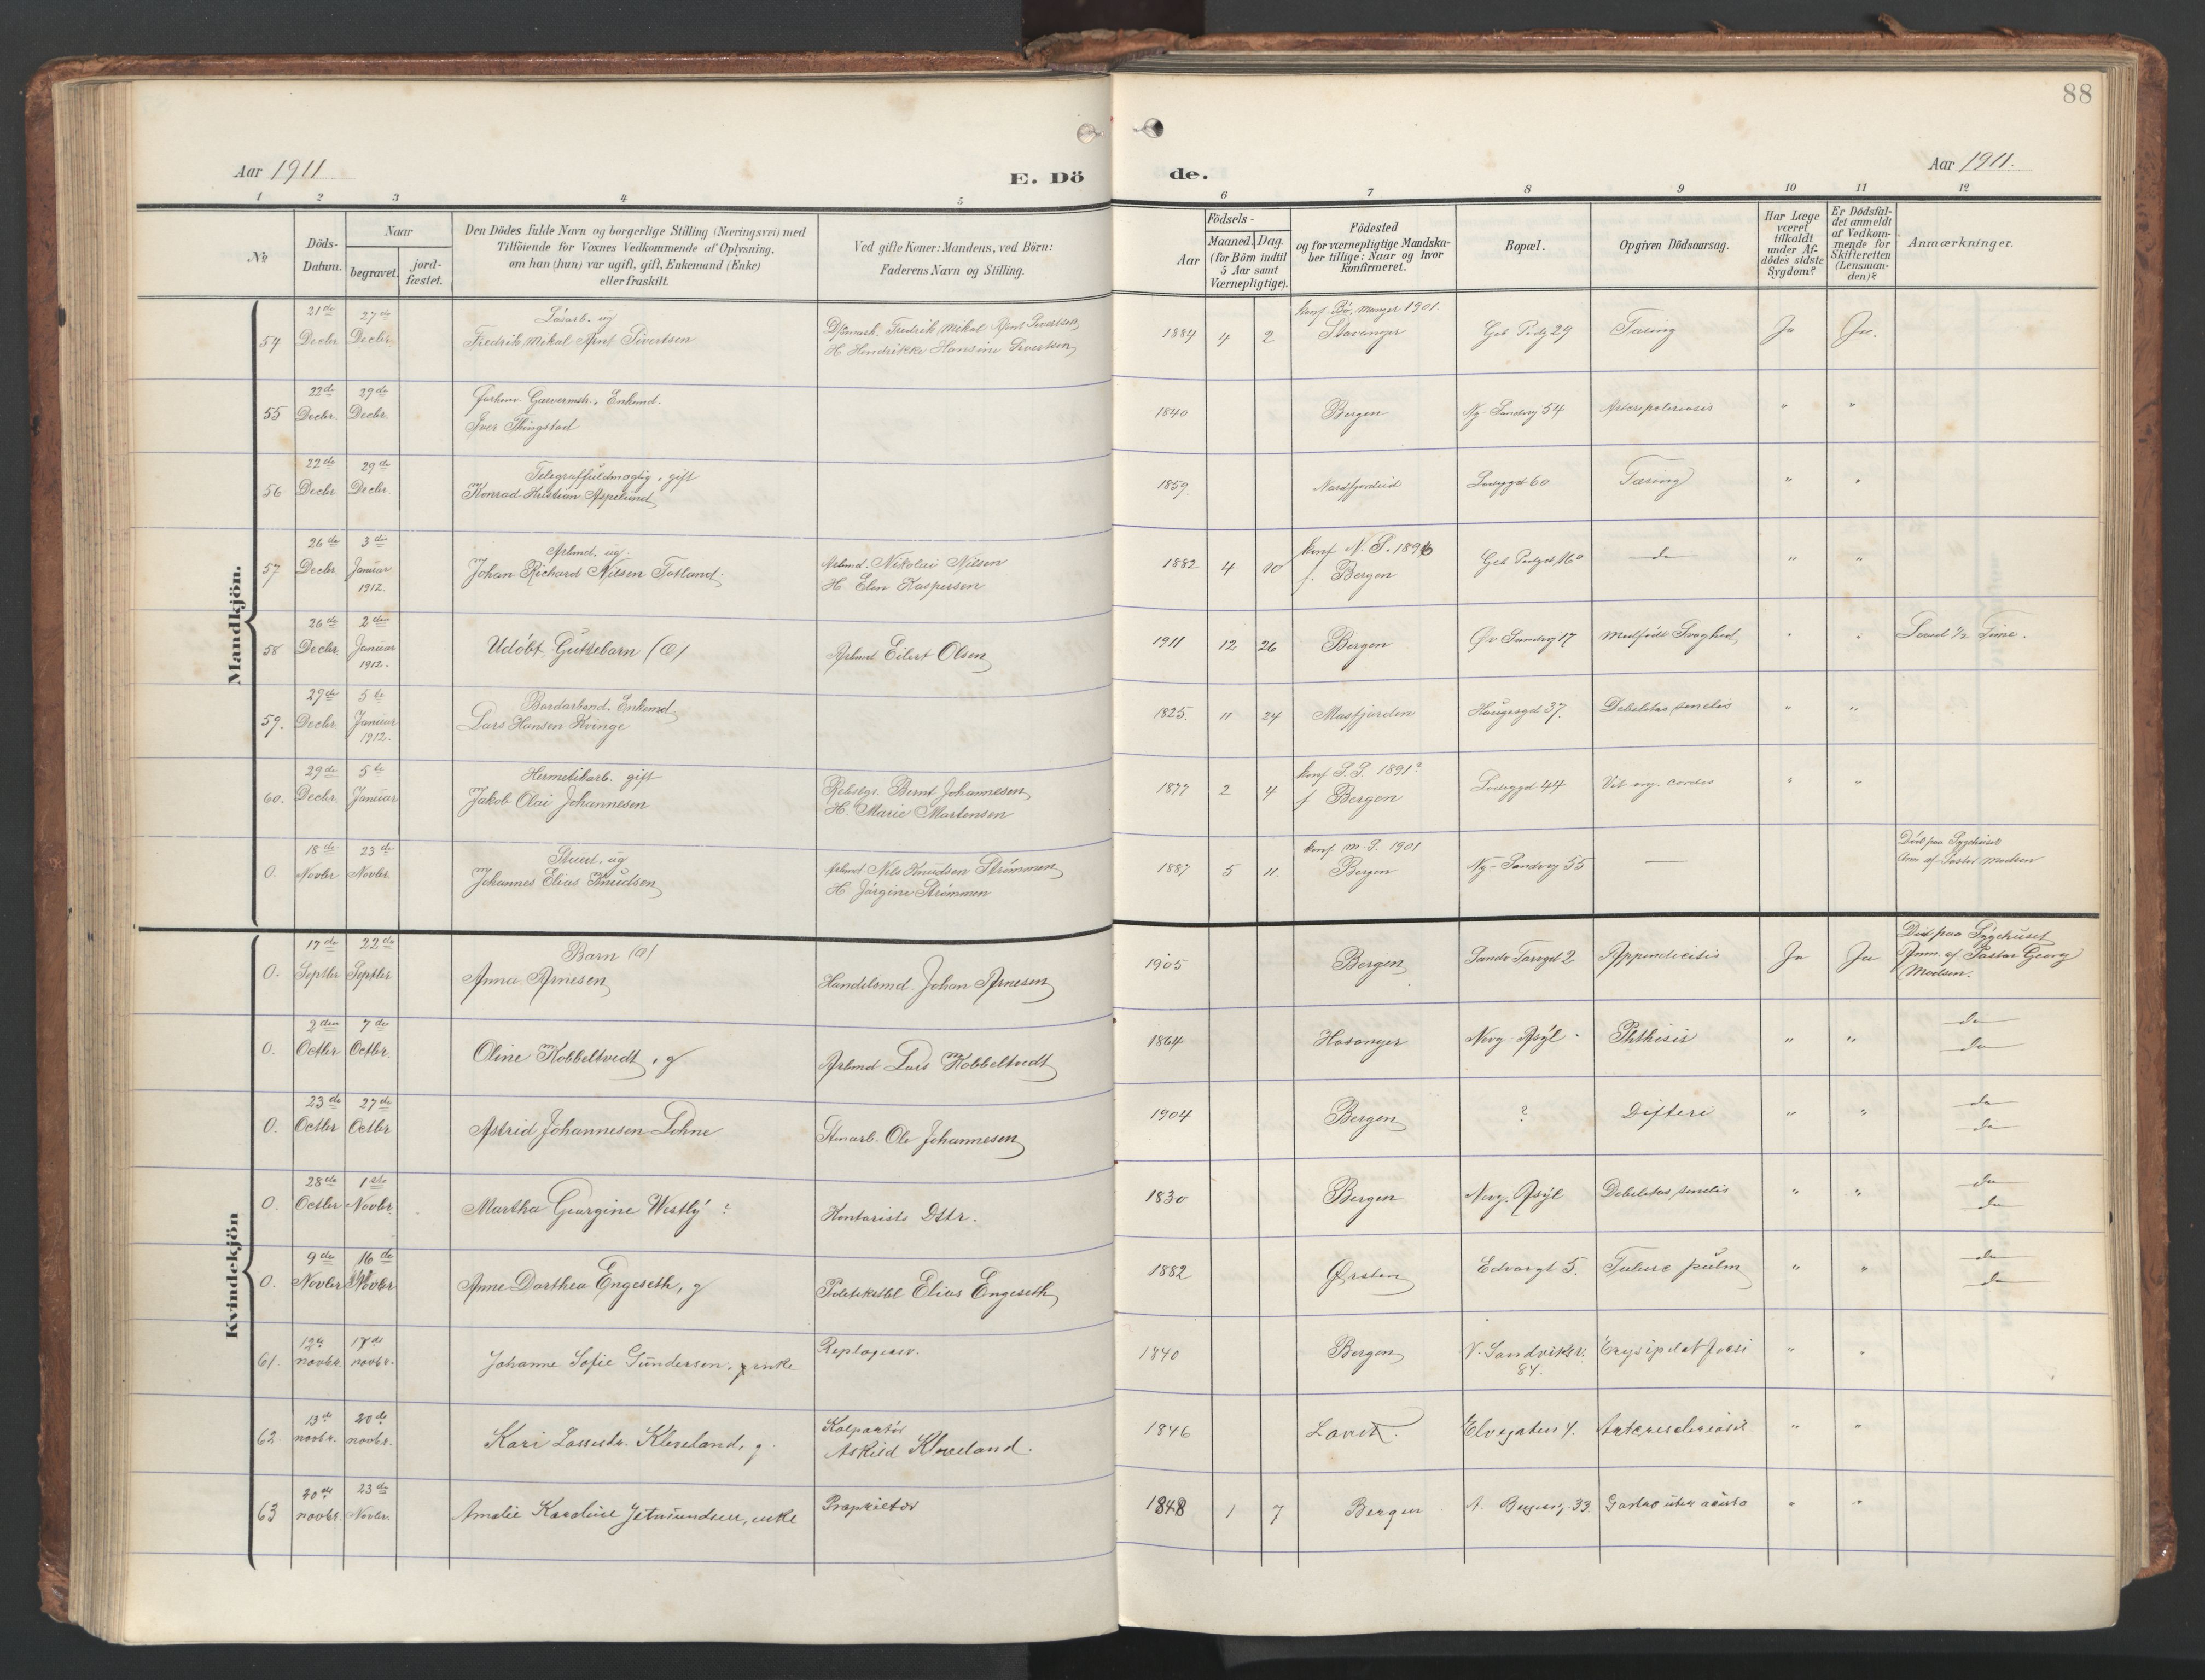 88
Aar 1911
E. Dö
de.
Aar 1911.
1 2 3 4 5 6 7 8 9 10 11 12
No
Döds-
Datum.
Naar
begravet.
jord-
fæstet.
Den Dödes fulde Navn og borgerlige Stilling (Næringsvei) med
Tilföiende for Voxnes Vedkommende af Oplysning.
om han (hun) var ugift, gift, Enkemand (Enke)
eller fraskilt.
Ved gifte Koner: Mandens, ved Börn:
Faderens Navn og Stilling.
Födsels-
Aar
Maaned.
Dag.
(for Börn indtil
5 Aar samt
Værnepligtige).
Födested
og for værnepligtige Mandska-
ber tillige: Naar og hvor
konfirmeret.
Bopæl.
Opgiven Dödsaarsag.
Har Læge
været
tilkaldt
under Af-
dödes sidste
Sygdom?
Er Dödsfal-
det anmeldt
af Vedkom-
mende for
Skifteretten
(Lensman-
den)?
Anmærkninger.
Mandkjön.
54
21de Decbr
27de Decbr.
Løsarb. ug
Fredrik Mikal Arnt Sivertsen
Fredrik Mikal Arnt Sivertsen
H. Hendrikke Hansine Sivertsen
1884 4 2
1901.
Stavanger
29
Tæring
Ja
Ja.
55
22de Decbr.
29de Decbr.
Garvermstr., Enkemd.
Iver Thingstad
1840
Bergen
Ny-Sandvig 54
" "
56
22de Decbr
29de Decbr.
Telegraffuldmægtig, gift
Konrad Kristian Aspelund
1859.
Nordfjordeid
60
Tæring
" "
57
26de Decbr.
3die Januar
1912.
Arbmd. ug.
Johan Richard Nilsen Totland
Arbmd. Nikolai Nilsen
H. Elen Kaspersen
1882 4 10
konf N. P. 1896
f. Bergen
do
" "
58
26de Decbr
2den Januar
1912.
Udöbt Guttebarn (O)
Arbmd Eilert Olsen
1911 12 26
Bergen
Øv Sandvg 17
Medfödt Svaghed
" "
Levend 1/2 Time.
59.
29de Decbr.
5te Januar
1912.
Enkemd
Lars Hansen Kvinge
1825. 11 24
Masfjorden
Haugesgd 37.
Debilitas senilis
" "
60.
29de Decbr.
5te Januar
Hermetikarb. gift
Jakob Olai Johannesen
Rebslgr. Bernt Johannesen
H. Marie Martensen
1877 2 4
1891?
f Bergen
44
Vit. org. cordis
" "
0.
18de Novbr
23de Novbr.
Stuert. ug
Johannes Elias Knudsen
Arbmd Nils Knudsen Strømmen
H Jörgine Strømmen
1887 5 11.
konf. 1901
Bergen
Ny-Sandvg 55
—
Död paa Sygehuset
Anm. af Pastor Madsen
Kvindekjön
0.
17de Septbr
22de Septbr
Barn (O)
Anna Arnesen
Handelsmd. Johan Arnesen
1905
Bergen
Sandv Torvgd 2
Appendicitis
Ja
Ja
Död paa Sygehuset
Anm. af Pastor Georg
Madsen.
0.
2den Octbr
7de Octbr.
Oline Kobbeltvedt, g
Arbmd Lars Kobbeltvedt
1864
Hosanger
Asyl
Phthisis
" "
do
do
0.
23de Octbr
27de Octbr
Astrid Johannesen Lohne
Stenarb. Ole Johannesen
1904
Bergen
?
Difteri
" "
do
do
0.
28de Octbr
1ste Novbr.
Martha Georgine Westly ?
Kontorists Dttr.
1830
Bergen
Asyl
Debilitas senilis
" "
do
do
0.
9de Novbr
16de Novbr
Anne Dorthea Engeseth, g
Politikstbl Elias Engeseth
1882
Ørsten
Edvargt 5.
Tuberc pulm
" "
do
do
61.
12te novbr.
17de novbr.
Johanne Sofie Gundersen, enke
Repslagersv.
1840
Bergen
N. Sandviksv.
84.
" "
62.
13de novbr.
20de novbr.
Kari Lassestr. Kleveland, g.
Kolportör
Askild Kleveland.
1846
Lavik.
Elvegaten 4.
Arteriesclerose
" "
63
20de novbr
23de Novbr.
Amalie Karoline enke
Proprietær
1848 1 7
Bergen
33.
" "